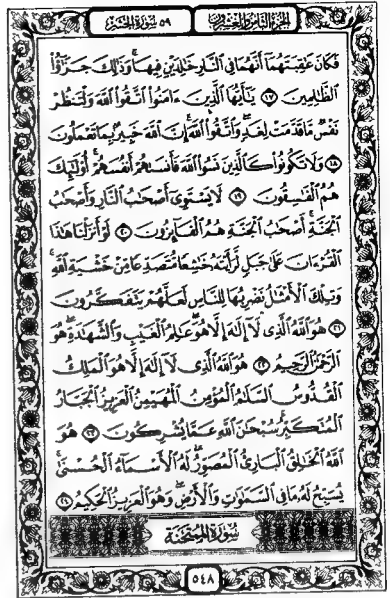 الجزء الثامن والعشرون ٥٩ سورة الحشر
فَكَانَ عَٰقِبَتَهُمَآ أَنَّهُمَا فِي ٱلنَّارِ خَٰلِدَيۡنِ فِيهَاۚ وَذَٰلِكَ جَزَٰٓؤُاْ
ٱلظَّٰلِمِينَ ١٧ يَٰٓأَيُّهَا ٱلَّذِينَ ءَامَنُواْ ٱتَّقُواْ ٱللَّهَ وَلۡتَنظُرۡ
نَفۡسٞ مَّا قَدَّمَتۡ لِغَدٖۖ وَٱتَّقُواْ ٱللَّهَۚ إِنَّ ٱللَّهَ خَبِيرُۢ بِمَا تَعۡمَلُونَ
١٨ وَلَا تَكُونُواْ كَٱلَّذِينَ نَسُواْ ٱللَّهَ فَأَنسَىٰهُمۡ أَنفُسَهُمۡۚ أُوْلَٰٓئِكَ
هُمُ ٱلۡفَٰسِقُونَ ١٩ لَا يَسۡتَوِيٓ أَصۡحَٰبُ ٱلنَّارِ وَأَصۡحَٰبُ
ٱلۡجَنَّةِۚ أَصۡحَٰبُ ٱلۡجَنَّةِ هُمُ ٱلۡفَآئِزُونَ ٢٠ لَوۡ أَنزَلۡنَا هَٰذَا
ٱلۡقُرۡءَانَ عَلَىٰ جَبَلٖ لَّرَأَيۡتَهُۥ خَٰشِعٗا مُّتَصَدِّعٗا مِّنۡ خَشۡيَةِ ٱللَّهِۚ
وَتِلۡكَ ٱلۡأَمۡثَٰلُ نَضۡرِبُهَا لِلنَّاسِ لَعَلَّهُمۡ يَتَفَكَّرُونَ
٢١ هُوَ ٱللَّهُ ٱلَّذِي لَآ إِلَٰهَ إِلَّا هُوَۖ عَٰلِمُ ٱلۡغَيۡبِ وَٱلشَّهَٰدَةِۖ هُوَ
ٱلرَّحۡمَٰنُ ٱلرَّحِيمُ ٢٢ هُوَ ٱللَّهُ ٱلَّذِي لَآ إِلَٰهَ إِلَّا هُوَ ٱلۡمَلِكُ
ٱلۡقُدُّوسُ ٱلسَّلَٰمُ ٱلۡمُؤۡمِنُ ٱلۡمُهَيۡمِنُ ٱلۡعَزِيزُ ٱلۡجَبَّارُ
ٱلۡمُتَكَبِّرُۚ سُبۡحَٰنَ ٱللَّهِ عَمَّا يُشۡرِكُونَ ٢٣ هُوَ
ٱللَّهُ ٱلۡخَٰلِقُ ٱلۡبَارِئُ ٱلۡمُصَوِّرُۖ لَهُ ٱلۡأَسۡمَآءُ ٱلۡحُسۡنَىٰۚ
يُسَبِّحُ لَهُۥ مَا فِي ٱلسَّمَٰوَٰتِ وَٱلۡأَرۡضِۖ وَهُوَ ٱلۡعَزِيزُ ٱلۡحَكِيمُ ٢٤
سورة الممتحنة
٥٤٨